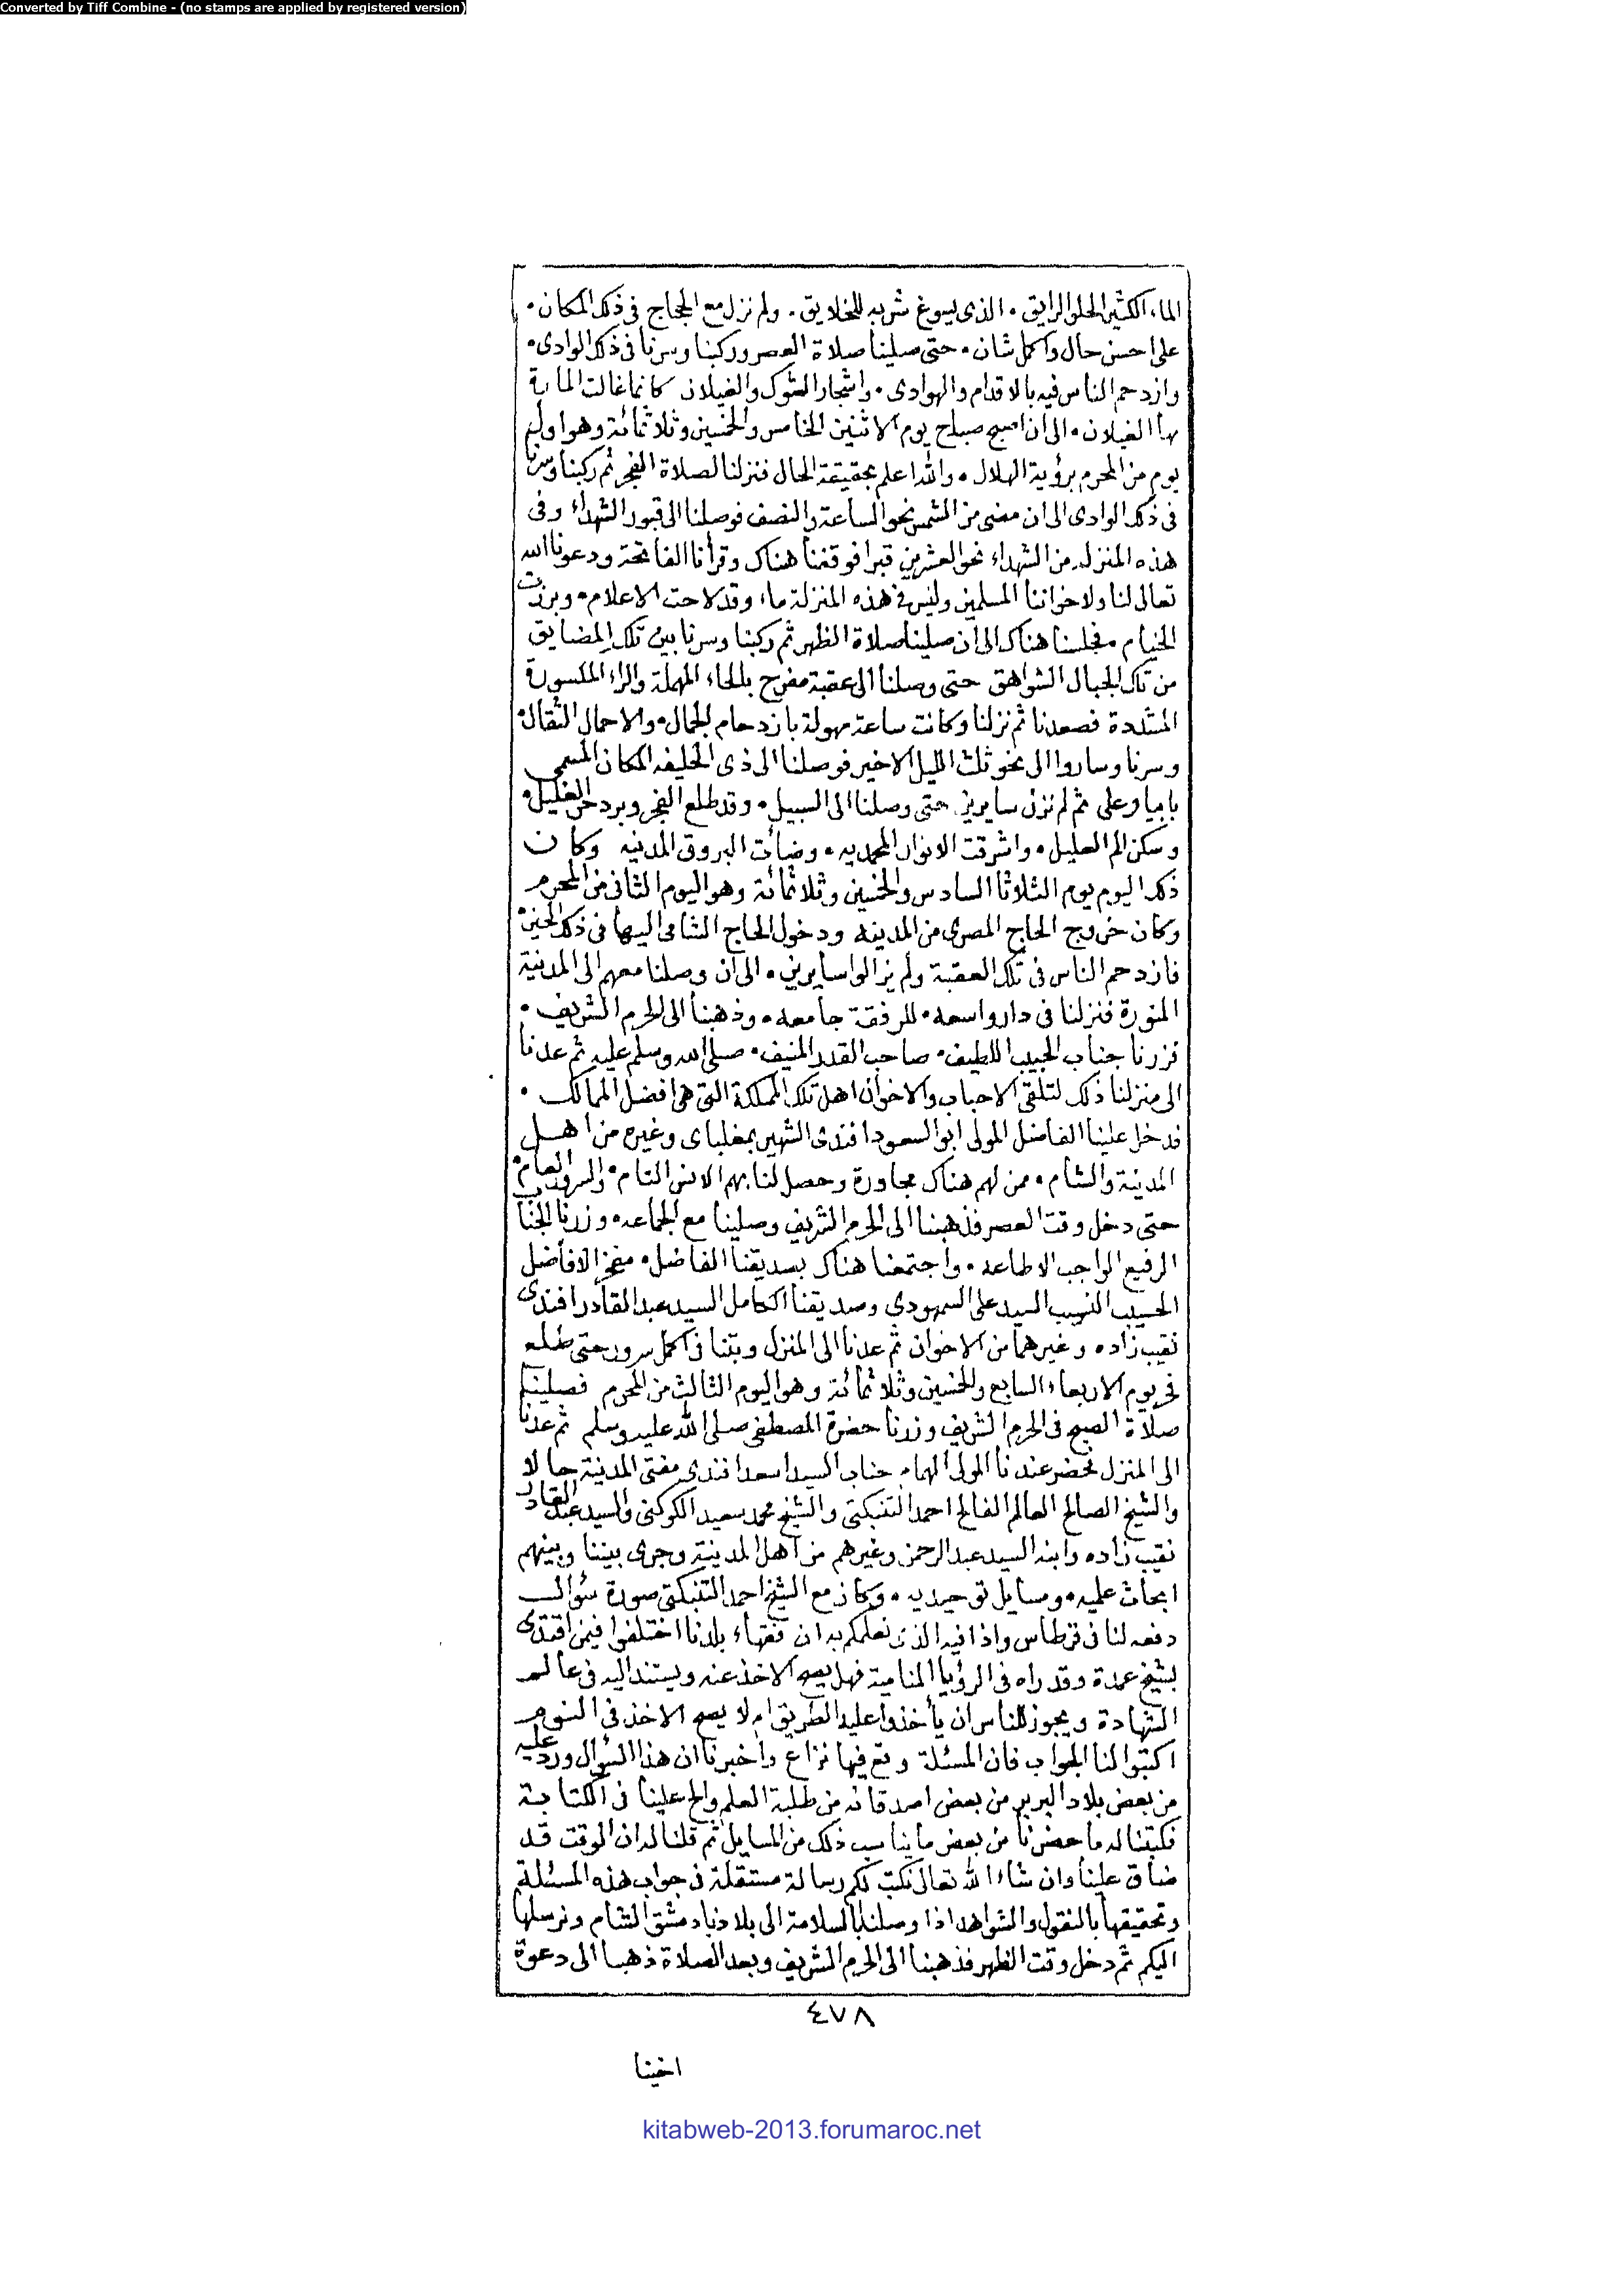 Converted by Tiff Combine - (no stamps are applied by registered version)
الماء الكثير الحلو الرايق • الذى يسوغ شربه للخلايق • ولم نزل مع الحجاج فى ذلك المكان •
على احسن حال واكمل شان • حتى صلينا صلاة العصر وركبنا وسرنا فى ذلك الوادى •
وازدحم الناس فيه بالاقدام والهوادى • واشجار الشوك والغيلان كانما غالت المارة
بها الغيلان • الى ان اصبح صباح يوم الاثنين الخامس والخمسين وثلاثمائة وهو اول
يوم من المحرم برؤية الهلال • والله اعلم بحقيقة الحال فنزلنا لصلاة الفجر ثم ركبنا وسرنا
فى ذلك الوادى الى ان مضى من الشمس نحو الساعة والنصف فوصلنا الى قبور الشهداء وفى
هذه المنزله من الشهداء نحو العشرين قبرا فوقفنا هناك وقرأنا الفاتحة ودعونا الله
تعالى لنا ولاخواننا المسلمين وليس فى هذه المنزلة ماء وقد لاحت الاعلام • وبرزت
الخيام • فجلسنا هناك الى ان صلينا صلاة الظهر ثم ركبنا وسرنا بين تلك المضايق
من تلك الجبال الشواهق حتى وصلنا الى عقبة مفرح بالحاء المهملة والراء المكسورة
المشددة فصعدنا ثم نزلنا وكانت ساعة مهولة بازدحام الجمال • والاحمال الثقال •
وسرنا وساروا الى نحو ثلث الليل الاخير فوصلنا الى ذى الحليفه المكان المسمى
بابيار على ثم لم نزل سايرين حتى وصلنا الى السبيل • وقد طلع الفجر وبرد حر الغليل •
وسكن الم العليل • واشرقت الانوار المحمديه • وضائت البروق المدنيه وكان
ذلك اليوم يوم الثلاثا السادس والخمسين وثلاثمائة وهو اليوم الثانى من المحرم
وكان خروج الحاج المصرى من المدينه ودخول الحاج الشامى اليها فى ذلك الحين •
فازدحم الناس فى تلك العقبة ولم يزالوا سايرين • الى ان وصلنا معهم الى المدينة
المنورة فنزلنا فى دار واسعه • للرفقة جامعه • وذهبنا الى الحرم الشريف •
فزرنا جناب الحبيب اللطيف • صاحب القدر المنيف • صلى الله وسلم عليه ثم عدنا
الى منزلنا ذلك لتلقى الاحباب والاخوان اهل تلك المملكة التى هى افضل الممالك •
فدخل علينا الفاضل المولى ابو السعود افندى الشهير بمغلباى وغيره من اهل
المدينة والشام • ممن لهم هناك مجاورة وحصل لنا بهم الانس التام • والسرور العام •
حتى دخل وقت العصر فذهبنا الى الحرم الشريف وصلينا مع الجماعه • وزرنا الجناب
الرفيع الواجب الاطاعه • واجتمعنا هناك بصديقنا الفاضل • مفخر الافاضل
الحسيب النسيب السيد على السمهودى وصديقنا الكامل السيد عبد القادر افندى
نقيب زاده وغيرهما من الاخوان ثم عدنا الى المنزل وبتنا فى اكمل سرور حتى طلع
فجر يوم الاربعاء السابع والخمسين وثلاثمائة وهو اليوم الثالث من المحرم فصلينا
صلاة الصبح فى الحرم الشريف وزرنا حضرة المصطفى صلى الله عليه وسلم ثم عدنا
الى المنزل فحضر عندنا المولى الهمام جناب السيد اسعد افندى مفتى المدينة حالا
والشيخ الصالح العالم الفالح احمد التنبكتى والشيخ محمد سعيد الكوكنى والسيد عبد القادر
نقيب زاده وابنه السيد عبد الرحمن وغيرهم من اهل المدينة وجرى بيننا وبينهم
ابحاث علميه • ومسايل توحيديه • وكان مع الشيخ احمد التنبكتى صورة سؤال
دفعه لنا فى قرطاس واذا فيه الذى نعلمكم به ان فقهاء بلدنا اختلفوا فيمن اقتدى
بشيخ عمدة وقد راه فى الرؤيا المنامية فهل يصح الاخذ عنه ويستند اليه فى عالم
الشهادة ويجوز للناس ان يأخذوا عليه الطريق ام لا يصح الاخذ فى النوم
اكتبوا لنا الجواب فان المسئلة وقع فيها نزاع واخبرنا ان هذا السؤال ورد عليه
من بعض بلاد البربر من بعض اصدقائه من طلبة العلم والح علينا فى الكتابة
فكتبنا له ما حضرنا من بعض ما يناسب ذلك من المسايل ثم قلنا له ان الوقت قد
ضاق علينا وان شاء الله تعالى نكتب لكم رسالة مستقلة فى جواب هذه المسئلة
وتحقيقها بالنقول والشواهد اذا وصلنا بالسلامة الى بلادنا دمشق الشام ونرسلها
اليكم ثم دخل وقت الظهر فذهبنا الى الحرم الشريف وبعد الصلاة ذهبنا الى دعوة
٤٧٨
اخينا
kitabweb-2013.forumaroc.net